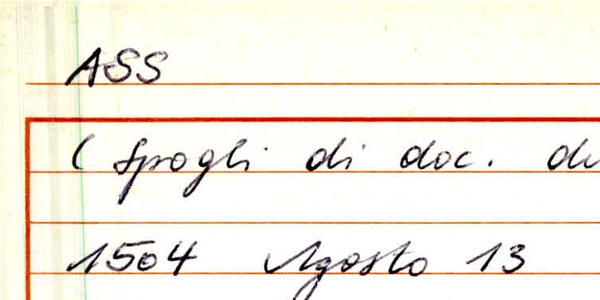 ASS
( Spogli di doc. de
1504 Agosto 13